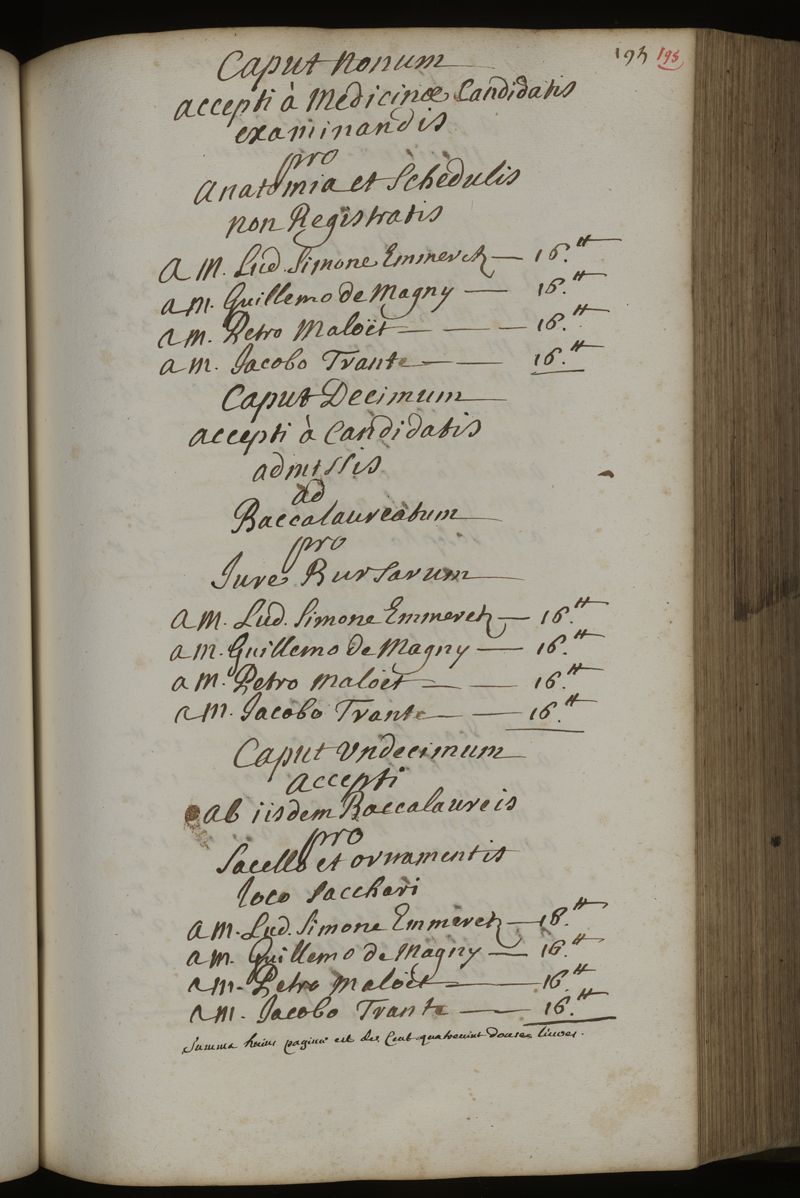 195 195
Caput Nonum
accepti à Medicinæ Candidatis
examinandis
pro
Anatomia et Schedulis
non Registratis
a M. Lud. Simone Emmerez — 16.tt
a M. Guillemo de Magny — 16.tt
a M. Petro Maloët — — — 16.tt
a M. Jacobo Trante — — 16.tt
Caput Decimum
accepti à Candidatis
admissis
ad
Baccalaureatum
pro
Jure Bursarum
a M. Lud. Simone Emmerez — 16.tt
a M. Guillemo de Magny — 16.tt
a M. Petro Maloët — — 16.tt
a M. Jacobo Trante — — 16.tt
Caput Undecimum
accepti
ab iisdem Baccalaureis
pro
Sacello et ornamentis
loco sacchari
a M. Lud. Simone Emmerez — 16.tt
a M. Guillemo de Magny — 16.tt
a M. Petro Maloët — — 16.tt
a M. Jacobo Trante — — 16.tt
Summa huius paginæ est des Cent quatrevint douses livres.